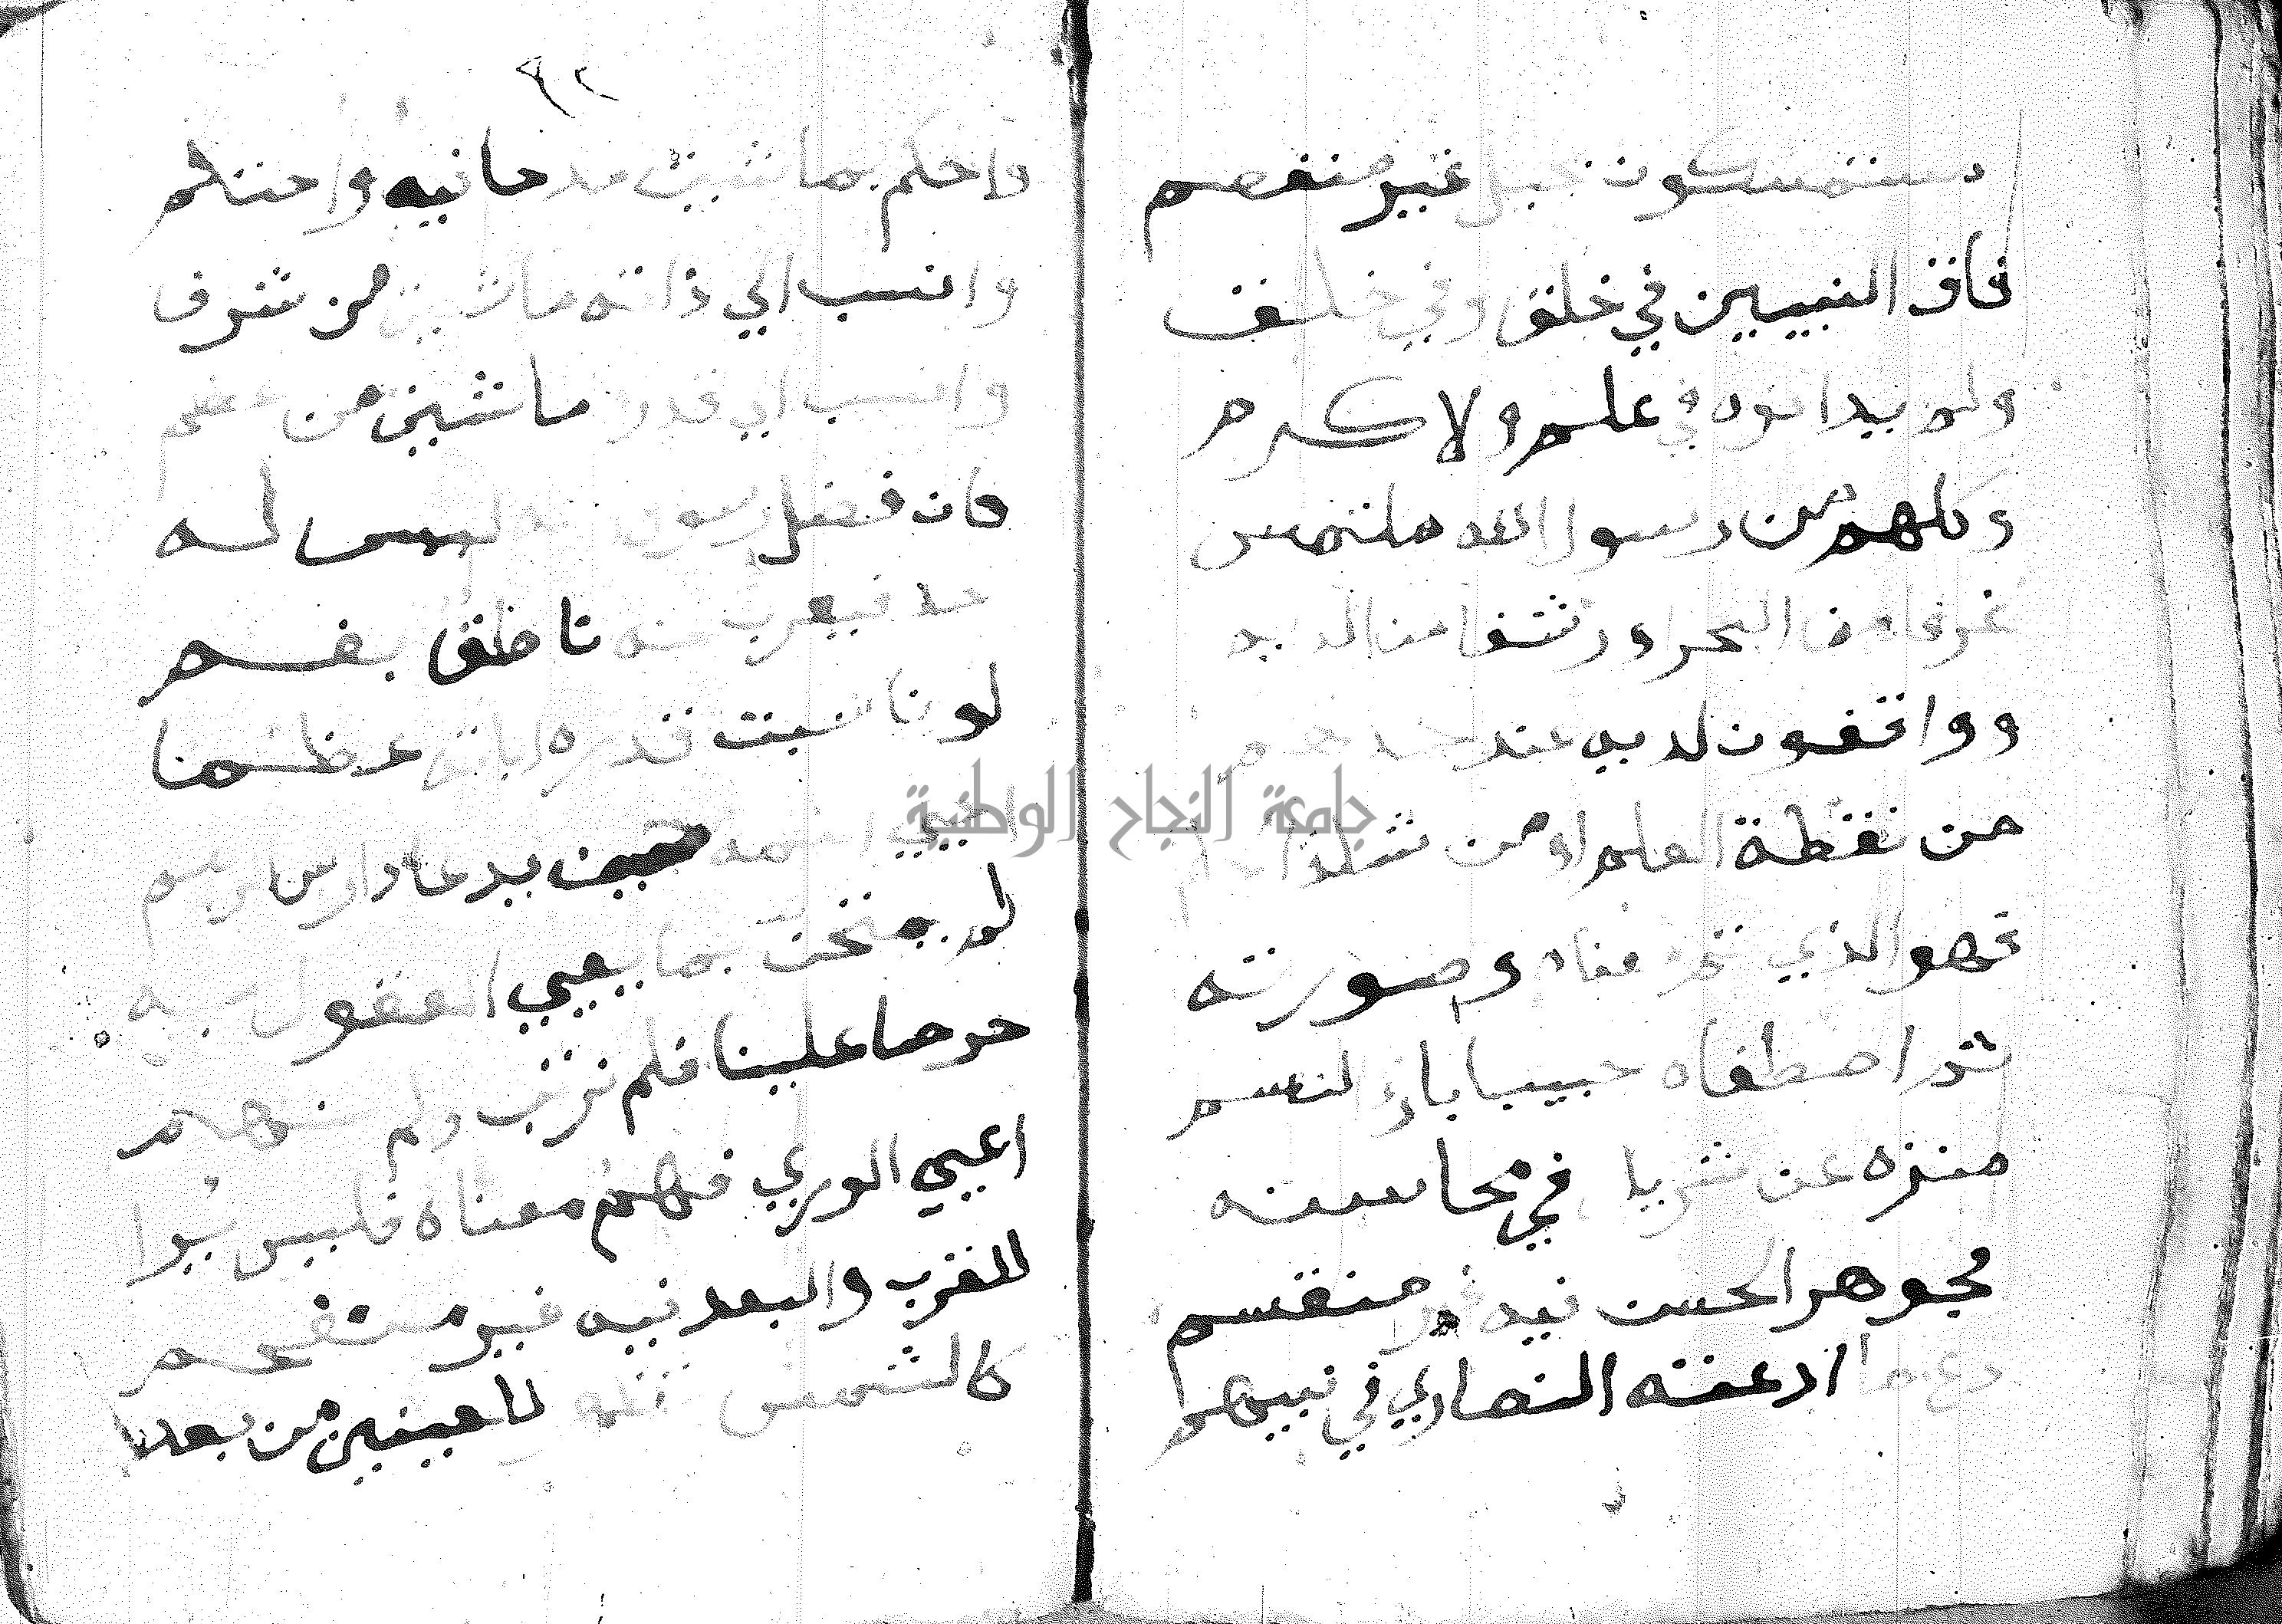 مستمسكون بحبل غير منفصم
فاق النبيين في خلق وفي خلق
ولم يدانوه في علم ولا كرم
وكلهم من رسول الله ملتمس
غرفا من البحر او رشفا من الديم
وواقفون لديه عند حدهم
من نقطة العلم او من شكلة
فهو الذي تم معناه وصورته
ثم اصطفاه حبيبا بارئ النسم
منزه عن شريك في محاسنه
فجوهر الحسن فيه غير منقسم
دع ما ادعته النصاري في نبيهم
٩٢
واحكم بما شيت مدحا فيه واحتكم
وانسب الي ذاته ما شيت من شرف
وانسب الي قدره ما شيت من عظم
فان فضل رسول الله ليس له
حد فيعرب عنه ناطق بفم
لو ناسبت قدره اياته عظما
احيي اسمه حين يدعا دارس الرمم
لم يمتحنا بما يعيي العقول به
حرصا علينا فلم نرتب ولم نهم
اعيي الوري فهم معناه فليس يرا
للقرب والبعد فيه غير منفحم
كالشمس تظهر للعينين من بعد
جامعة النجاح الوطنية